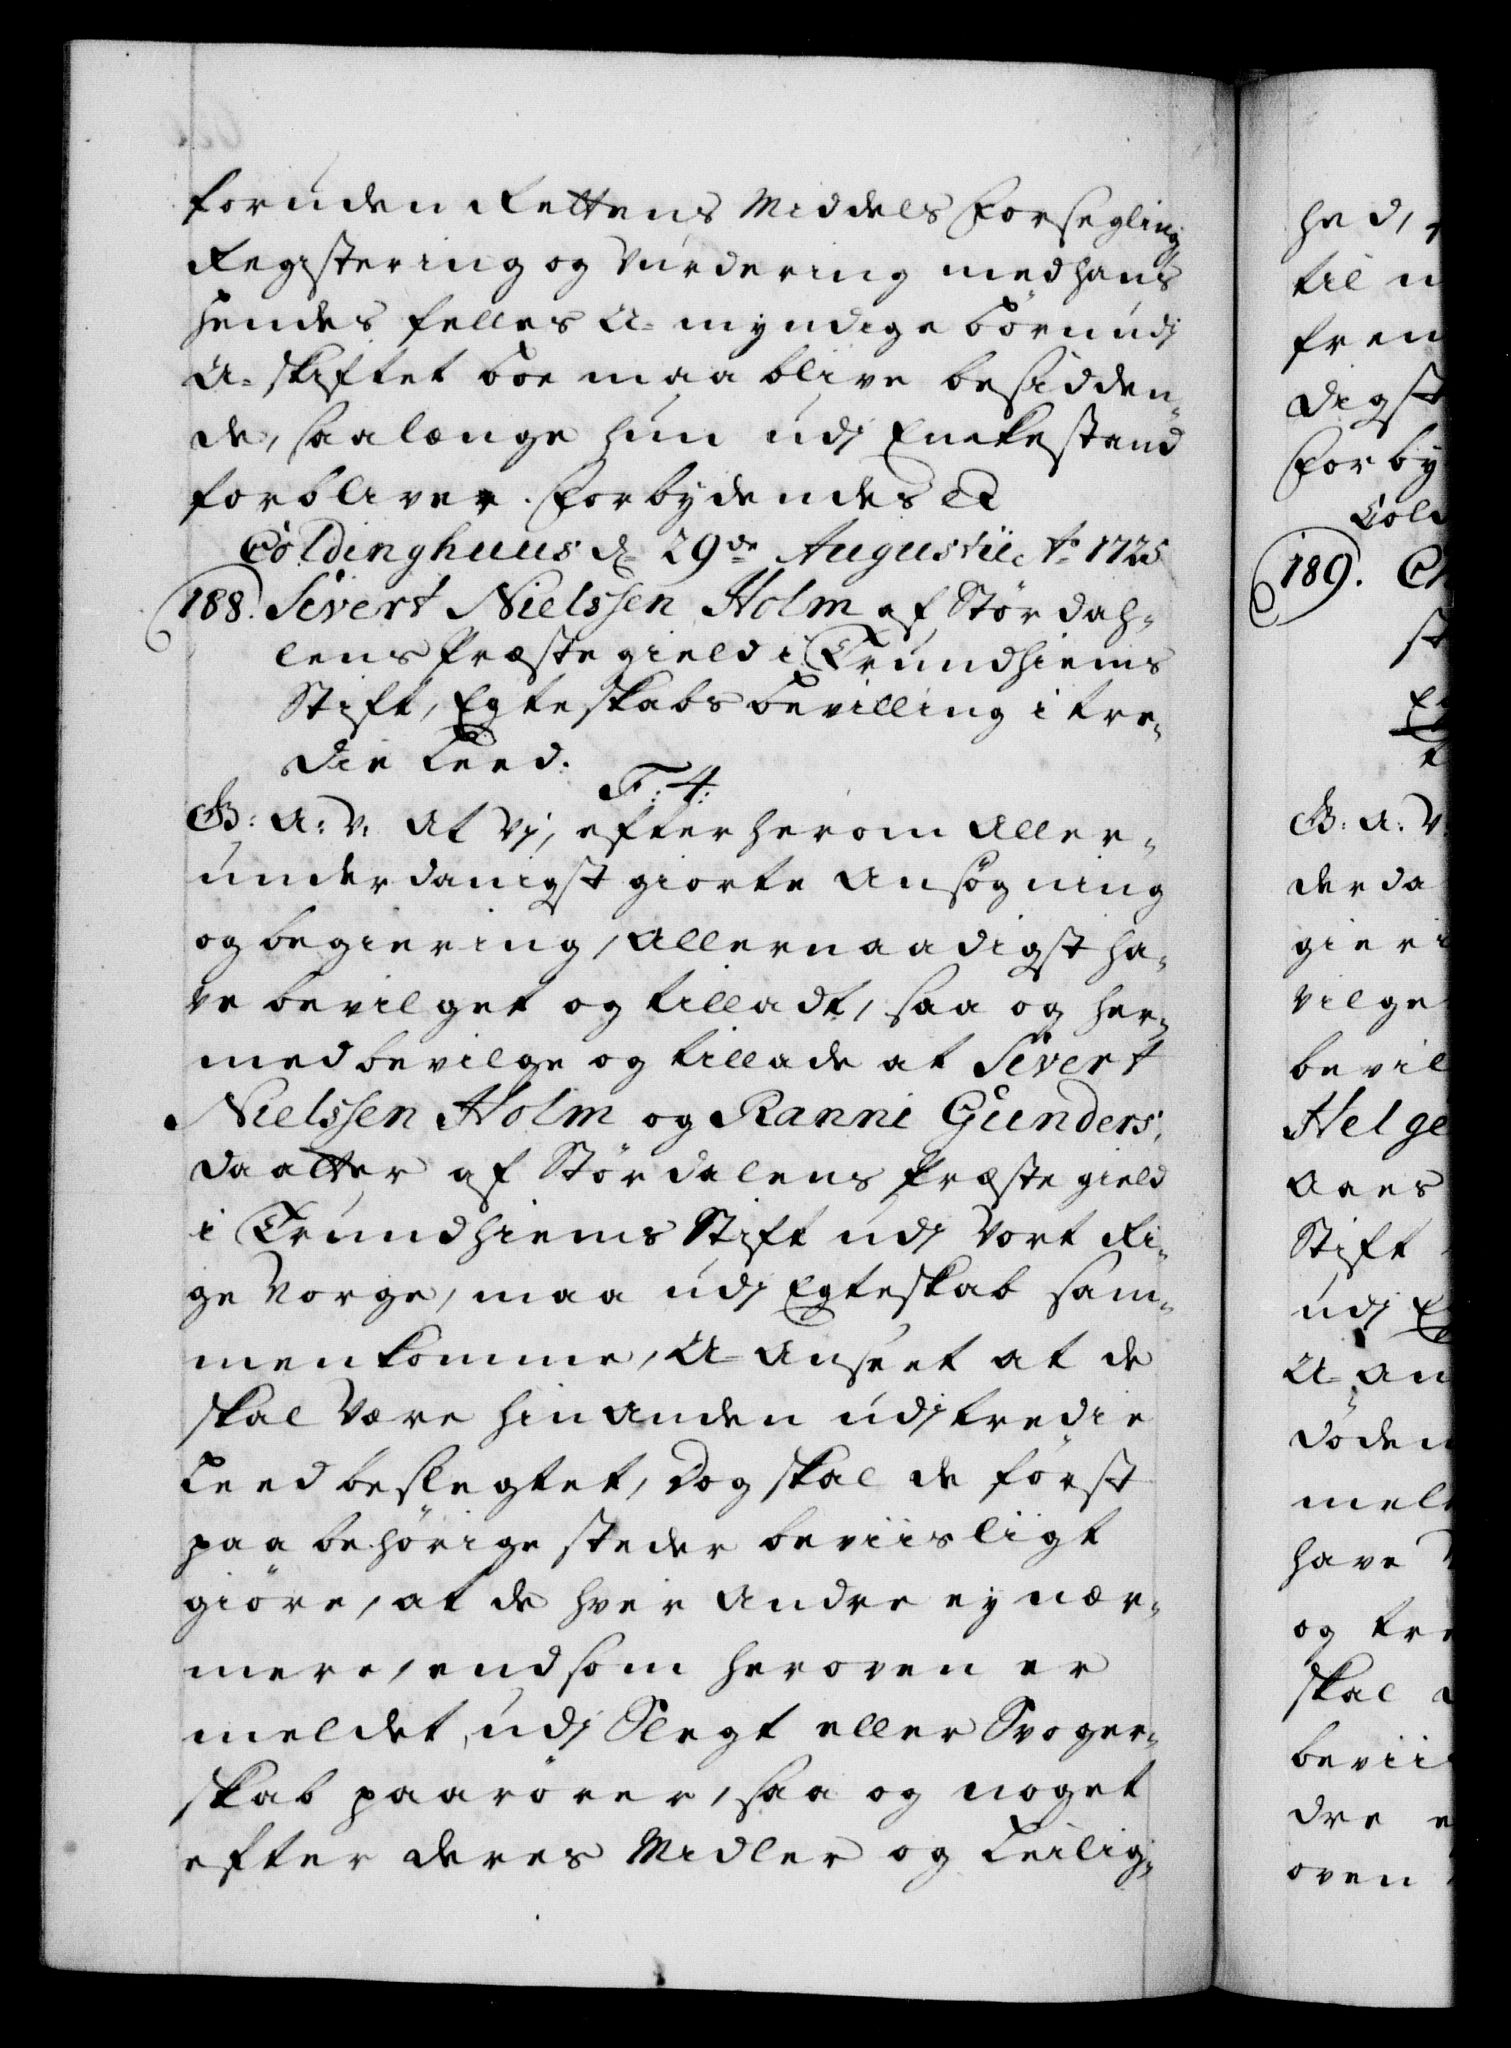 foruden Rettens Middels Forsegling
Registering og Vurdering med hans
hendes felles U-myndige börn udj
U-skiftet boe maa blive besidden-
de, saalænge hun udj Enkestand
forbliver. Forbydendes &
Coldinghuus d. 29de Augustii Ao 1725
188. Sivert Nielssen Holm af Stördah-
lens Præstegield i Trundhiems
Stift, Egteskabs bevilling i tre-
die Leed.
F: 4:
G: A: V: At Vj, efter herom Aller-
underdanigst giorte Ansögning
og begiering, Allernaadigst ha-
ve bevilget og tilladt, saa og her-
med bevilge og tillade at Sivert
Nielssen Holm og Ranni Gunders-
daatter af Stördalens Præstegield
i Trundhiems Stift udj Vort Ri-
ge Norge, maa udj Egteskab sam-
menkomme, U-Anseet at de
skal Være hinanden udj tredie
Leed beslegtet, Dog skal de först
paa behörige steder beviisligt
giöre, at de hver Andre ey nær-
mere, end som heroven er
meldet, udj Slegt eller Svoger-
skab paarörer, saa og noget
efter deres Midler og Leilig-
hed,
til
frem
digst
Forby
Cold
189. Ch
st
G: A: V:
derda
gieri
vilge
bevil
Helge
Aaes
Stift
udj
U-An
döden
mel
have
og tre
skal
bevii
dre
oven